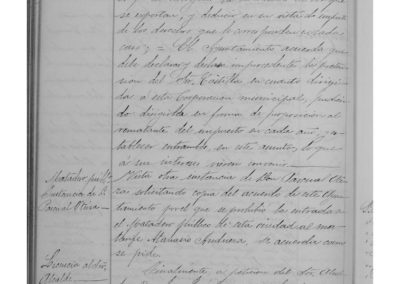 se exportan, y deducir en su vista el importe
de los derechos que le corresponden en cada
caso; = El Ayuntamiento acuerda que
debe declarar y declara improcedente la preten
sion del Sr. Castilla en cuanto dirigi
da á esta Corporacion municipal, pudien
do dirigirla en forma de proposicion al
rematante del impuesto en cada año, y es
tablecer entrambos, en este asunto, lo que
á sus intereses viesen convenir.
Matadero públº
Instancia de D.
Pascual Otura
Vista otra instancia de Don Pascual Otu
ra solicitando copia del acuerdo de este Ayun
tamiento por el que se prohibe la entrada en
el Matadero público de esta ciudad al ma
tarife Atanasio, se acuerda como
se pide.
Licencia al Sr.
Alcalde
Finalmente, á peticion del Sr. Alcal